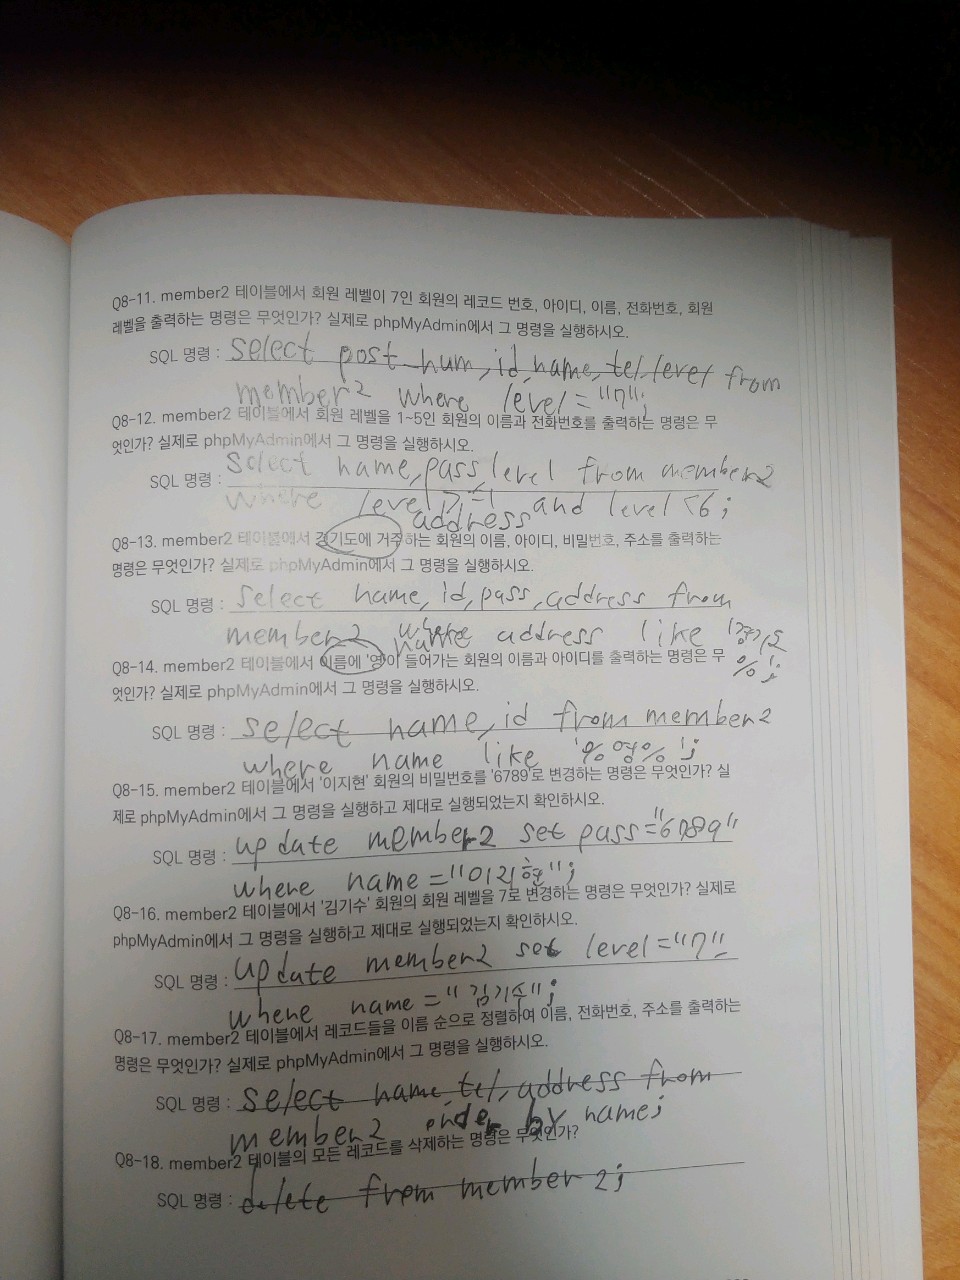 Q8-11. member2 테이블에서 회원 레벨이 7인 회원의 레코드 번호, 아이디, 이름, 전화번호, 회원
레벨을 출력하는 명령은 무엇인가? 실제로 phpMyAdmin에서 그 명령을 실행하시오.
SQL 명령 : select post num, id, name, tel, level from
member2 where level = "7";
Q8-12. member2 테이블에서 회원 레벨을 1~5인 회원의 이름과 전화번호를 출력하는 명령은 무
엇인가? 실제로 phpMyAdmin에서 그 명령을 실행하시오.
SQL 명령 : Select name, pass, level from member2
where level >=1 and level <6;
address
Q8-13. member2 테이블에서 경기도에 거주하는 회원의 이름, 아이디, 비밀번호, 주소를 출력하는
명령은 무엇인가? 실제로 phpMyAdmin에서 그 명령을 실행하시오.
SQL 명령 : select name, id, pass, address from
member2 where address like '경기도
%';
name
Q8-14. member2 테이블에서 이름에 '영'이 들어가는 회원의 이름과 아이디를 출력하는 명령은 무
엇인가? 실제로 phpMyAdmin에서 그 명령을 실행하시오.
SQL 명령 : select name, id from member2
where name like '%영%';
Q8-15. member2 테이블에서 '이지현' 회원의 비밀번호를 '6789'로 변경하는 명령은 무엇인가? 실
제로 phpMyAdmin에서 그 명령을 실행하고 제대로 실행되었는지 확인하시오.
SQL 명령 : update member2 set pass="6789"
where name = "이지현";
Q8-16. member2 테이블에서 '김기수' 회원의 회원 레벨을 7로 변경하는 명령은 무엇인가? 실제로
phpMyAdmin에서 그 명령을 실행하고 제대로 실행되었는지 확인하시오.
SQL 명령 : update member2 set level="7"
where name = "김기수";
Q8-17. member2 테이블에서 레코드들을 이름 순으로 정렬하여 이름, 전화번호, 주소를 출력하는
명령은 무엇인가? 실제로 phpMyAdmin에서 그 명령을 실행하시오.
SQL 명령 : select name, tel, address from
member2 order by name;
Q8-18. member2 테이블의 모든 레코드를 삭제하는 명령은 무엇인가?
SQL 명령 : delete from member2;